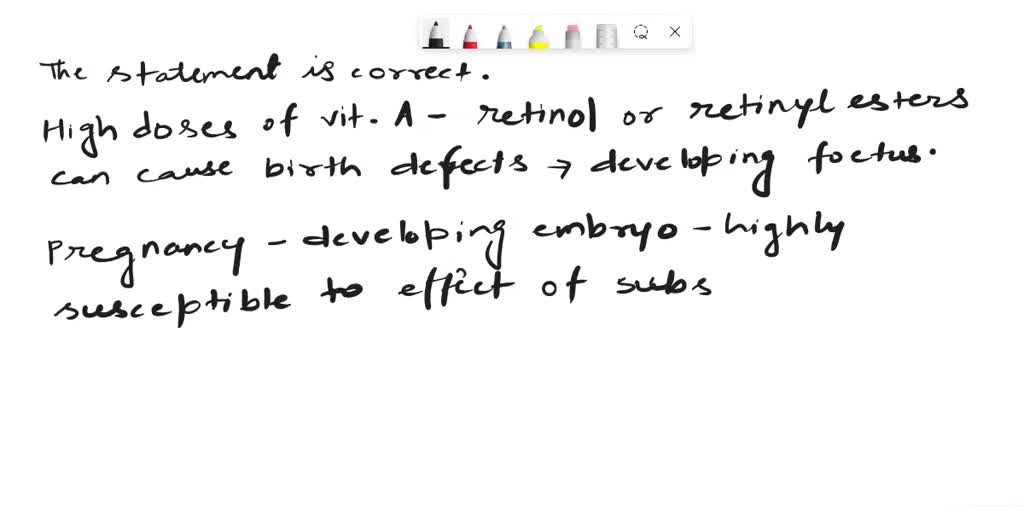 The statement is correct.
High doses of vit. A - retinol or retinyl esters
can cause birth defects → developing foetus.
Pregnancy - developing embryo - highly
susceptible to effect of subs